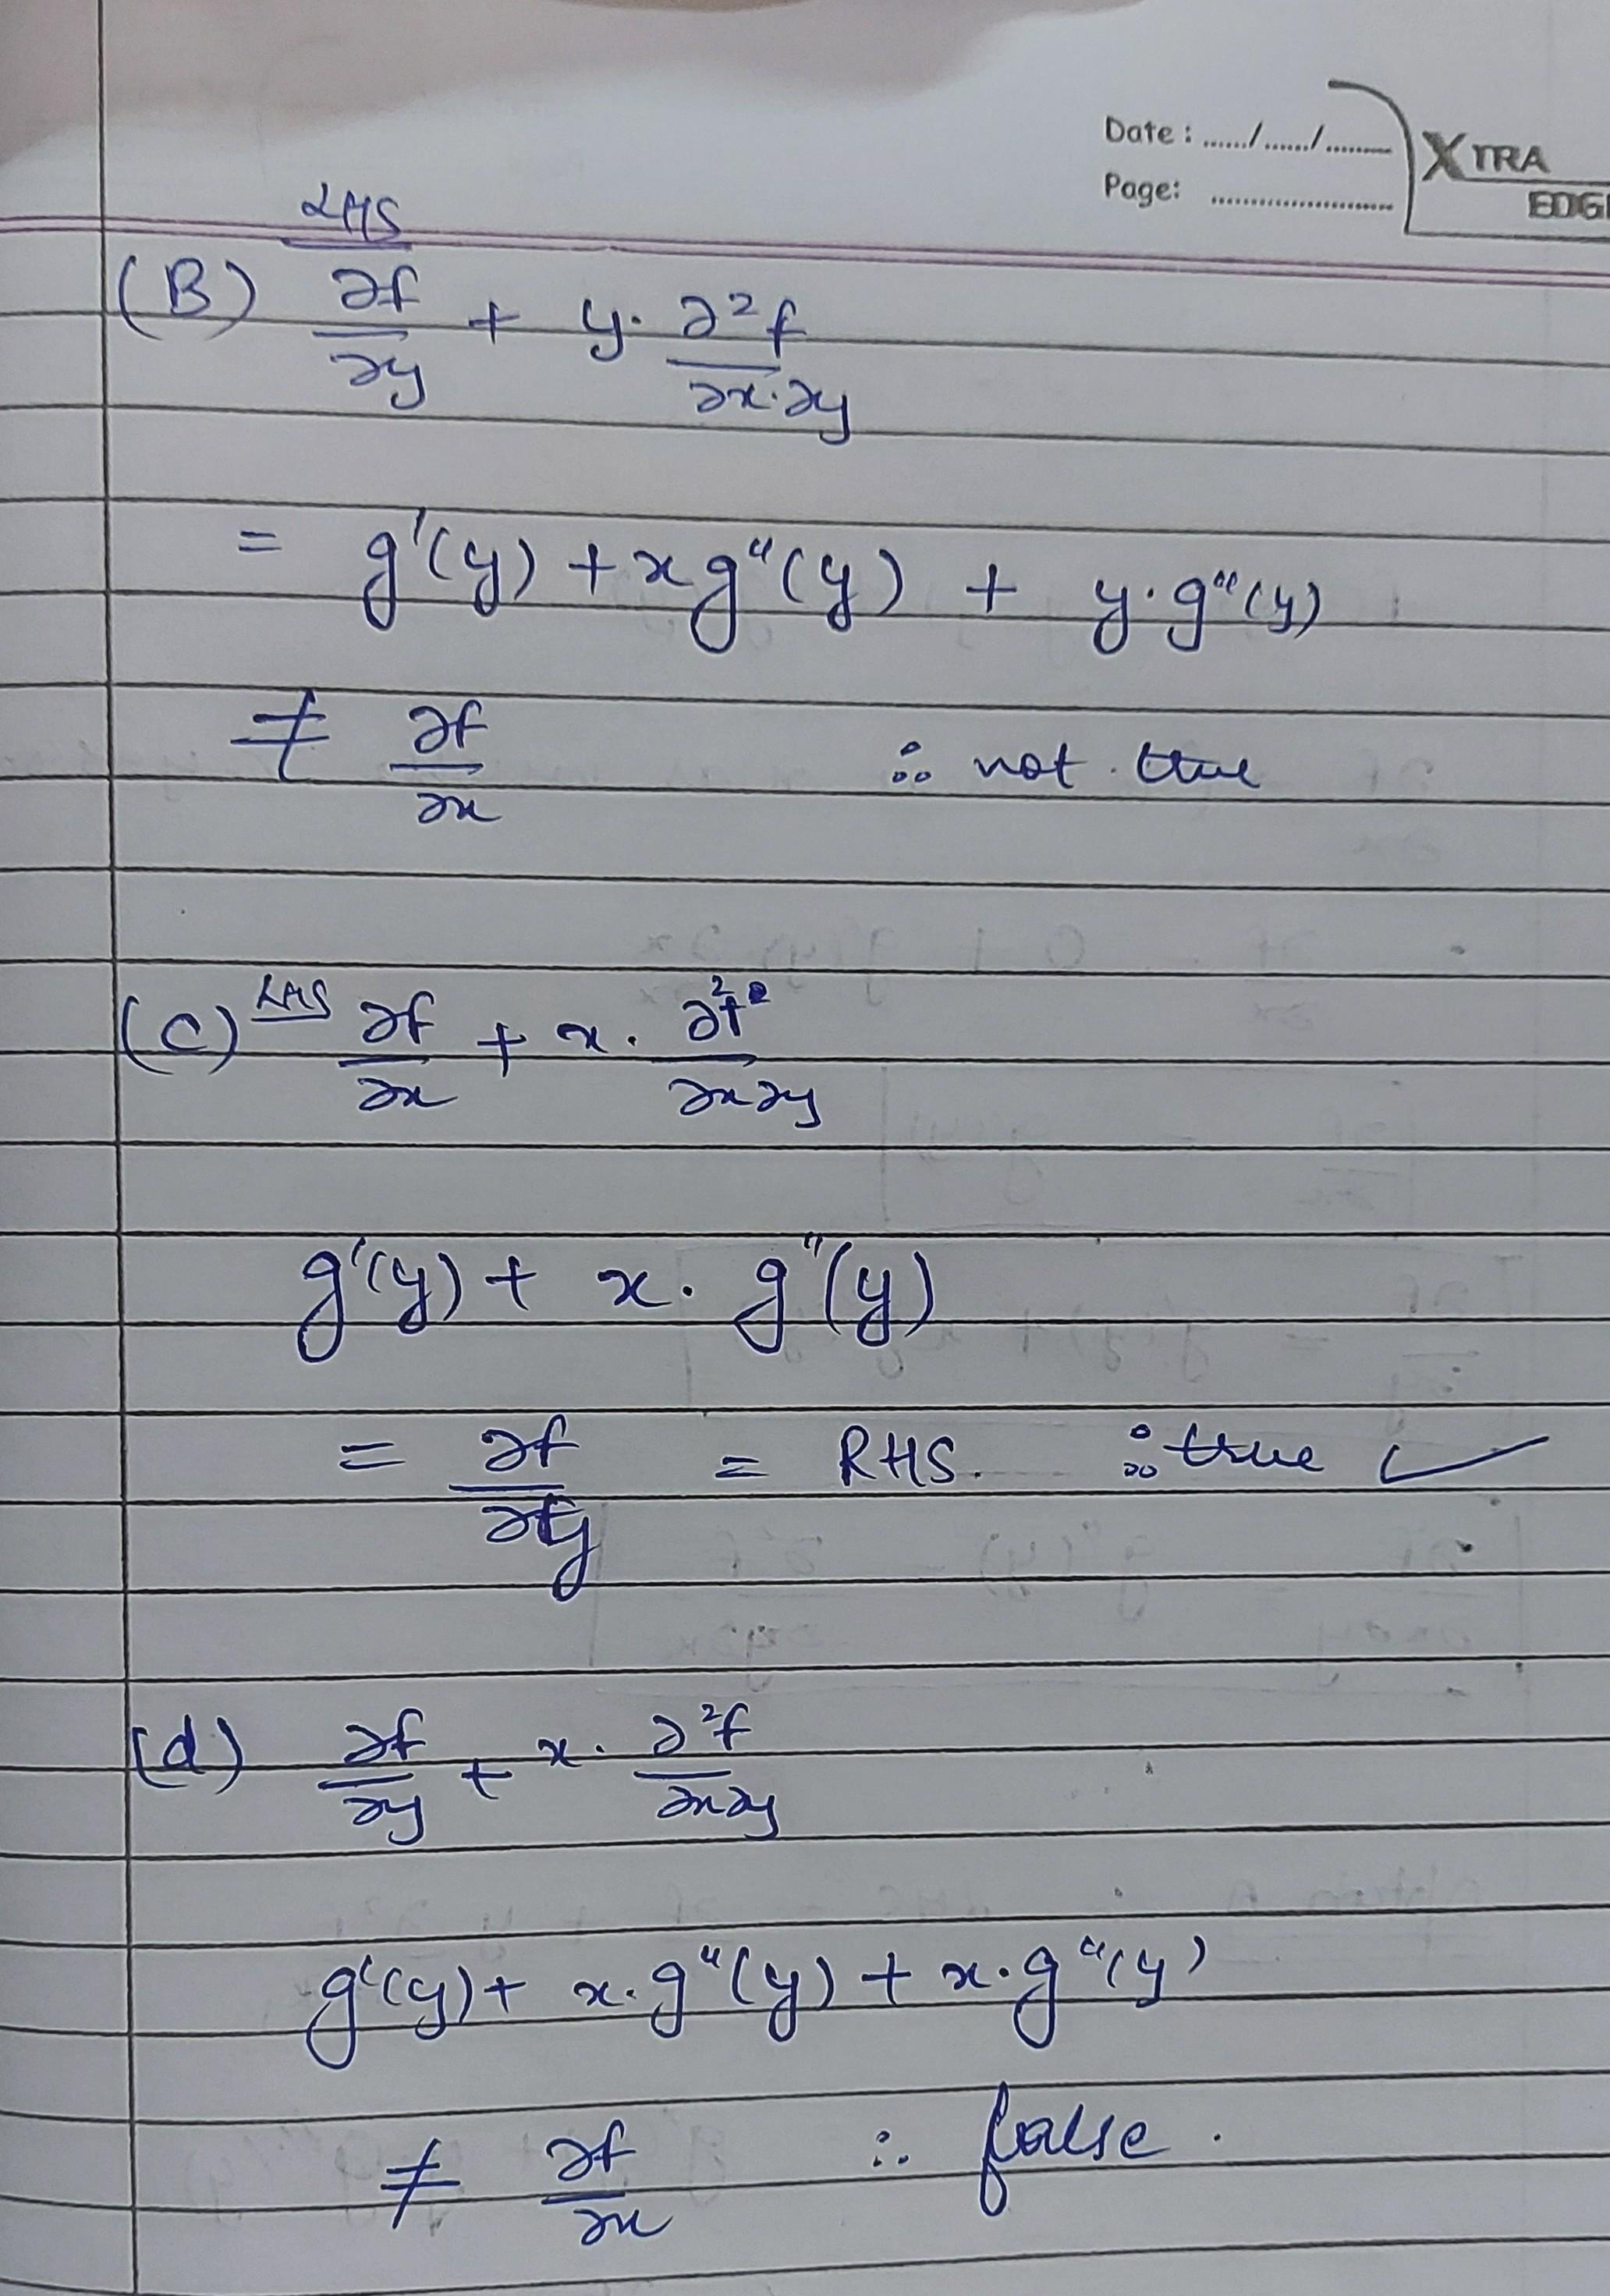 Date : ....../....../.........
Page: ........................
XTRA
EDG
LHS
(B) ∂f/∂y + y. ∂²f/∂x.∂y
= g'(y) + xg"(y) + y.g"(y)
≠ ∂f/∂x ∴ not true
(C) LHS ∂f/∂x + x. ∂²f/∂x∂y
g'(y) + x. g"(y)
= ∂f/∂y = RHS. ∴ true ✓
(d) ∂f/∂y + x. ∂²f/∂x∂y
g'(y) + x.g"(y) + x.g"(y)
≠ ∂f/∂x ∴ false.